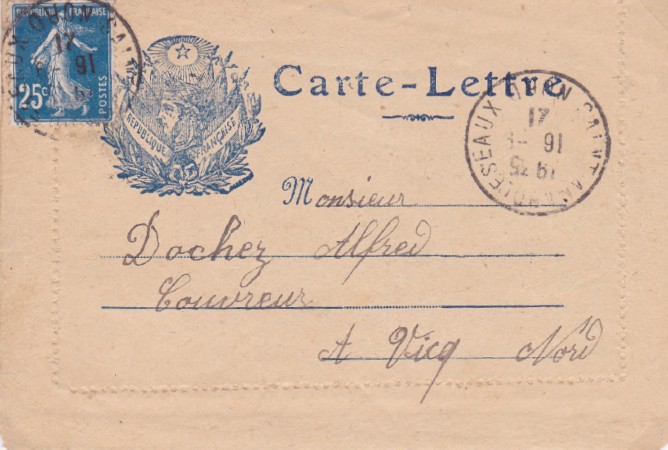 RÉPUBLIQUE FRANÇAISE
25c POSTES
RÉPUBLIQUE FRANÇAISE
Carte-Lettre
17
16
Monsieur
Dochez Alfred
Couvreur
A Vicq Nord